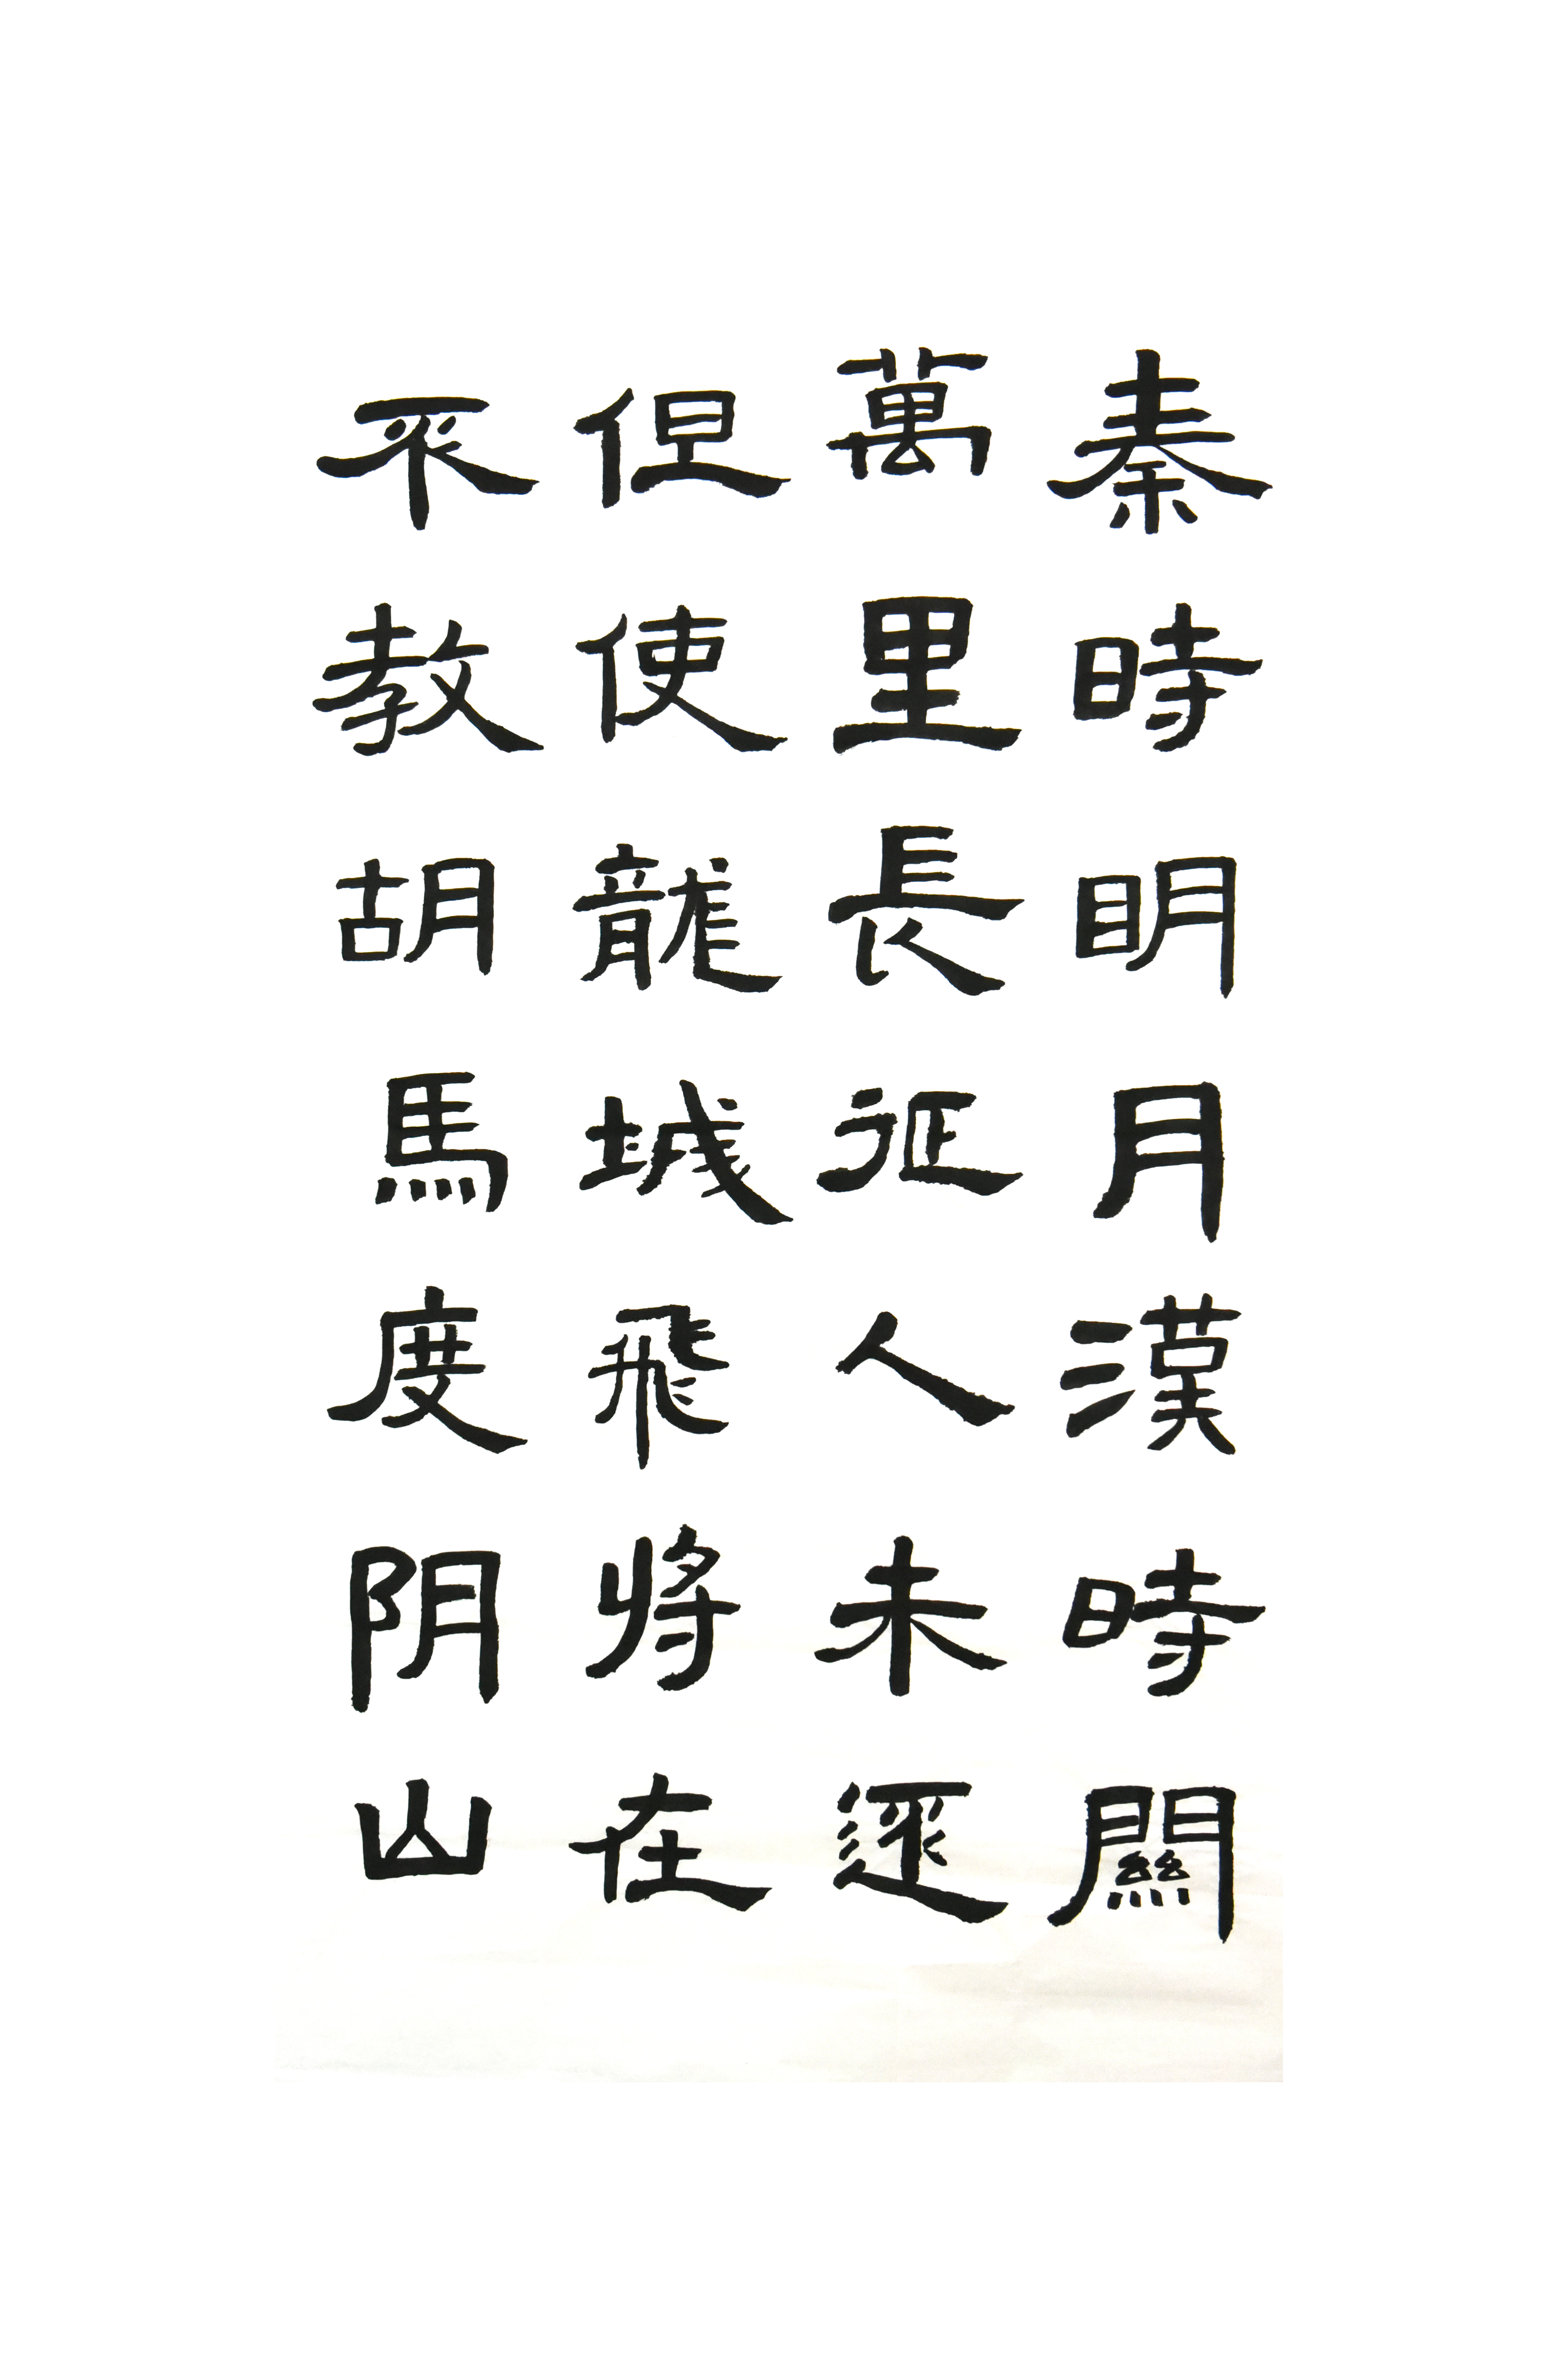 秦時明月漢時關
萬里長征人未还
但使龍城飛將在
不教胡馬度阴山